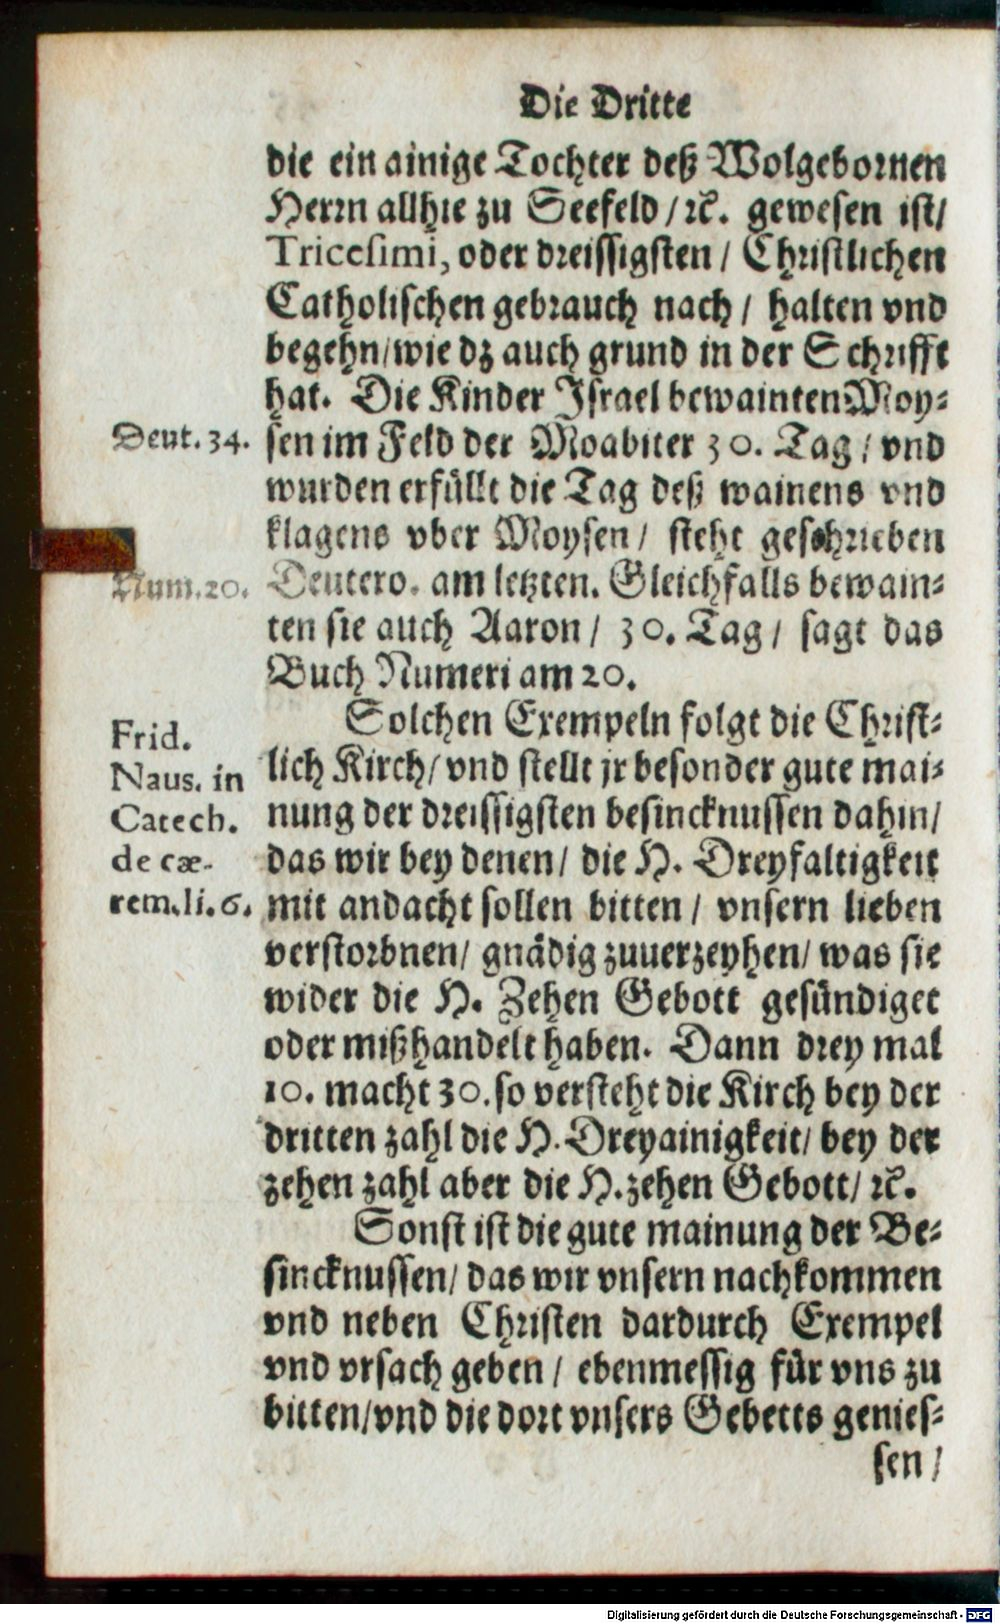 Die Dritte
die ein ainige Tochter deß Wolgebornen
Herrn allhie zu Seefeld / ꝛc. gewesen ist /
Tricesimi, oder dreissigsten / Christlichen
Catholischen gebrauch nach / halten vnd
begehn / wie dz auch grund in der Schrifft
hat. Die Kinder Israel bewainten Moy⸗
Deut. 34.
sen im Feld der Moabiter 30. Tag / vnd
wurden erfüllt die Tag deß wainens vnd
klagens vber Moysen / steht geschrieben
Num. 20.
Deutero. am letzten. Gleichfalls bewain⸗
ten sie auch Aaron / 30. Tag / sagt das
Buch Numeri am 20.
Solchen Exempeln folgt die Christ⸗
Frid.
Naus. in
Catech.
de cæ-
rem. li. 6.
lich Kirch / vnd stellt jr besonder gute mai⸗
nung der dreissigsten besincknussen dahin /
das wir bey denen / die H. Dreyfaltigkeit
mit andacht sollen bitten / vnsern lieben
verstorbnen / gnädig zuuerzeyhen / was sie
wider die H. Zehen Gebott gesündiget
oder mißhandelt haben. Dann drey mal
10. macht 30. so versteht die Kirch bey der
dritten zahl die H. Dreyainigkeit / bey der
zehen zahl aber die H. zehen Gebott / ꝛc.
Sonst ist die gute mainung der Be⸗
sincknussen / das wir vnsern nachkommen
vnd neben Christen dardurch Exempel
vnd vrsach geben / ebenmessig für vns zu
bitten / vnd die dort vnsers Gebetts genies⸗
sen /
Digitalisierung gefördert durch die Deutsche Forschungsgemeinschaft - DFG